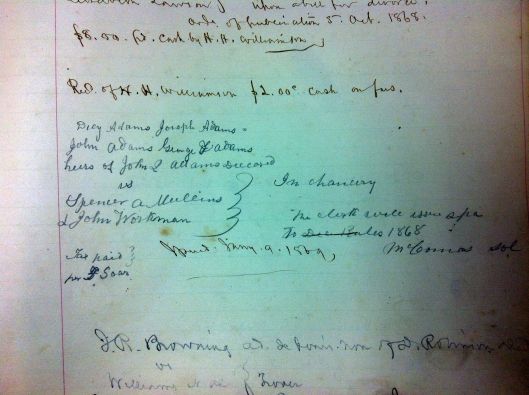 upon a bill for divorce,
order of publication 5. Oct. 1868.
$8.00 cash by H. H. Williamson
Recd. of H. H. Williamson $2.00 cash on fees.
Dicy Adams Joseph Adams
John Adams George Adams
heirs of John Q Adams Deceased
vs
Spencer A Mullins
& John Workman
In chancery
The clerk will issue spa
To Rules 1868
Issued Jany. 9. 1869,
Sol
Tax paid
per
J. R. Browning ad. de bonis non of Robinson
vs
Williams Trover